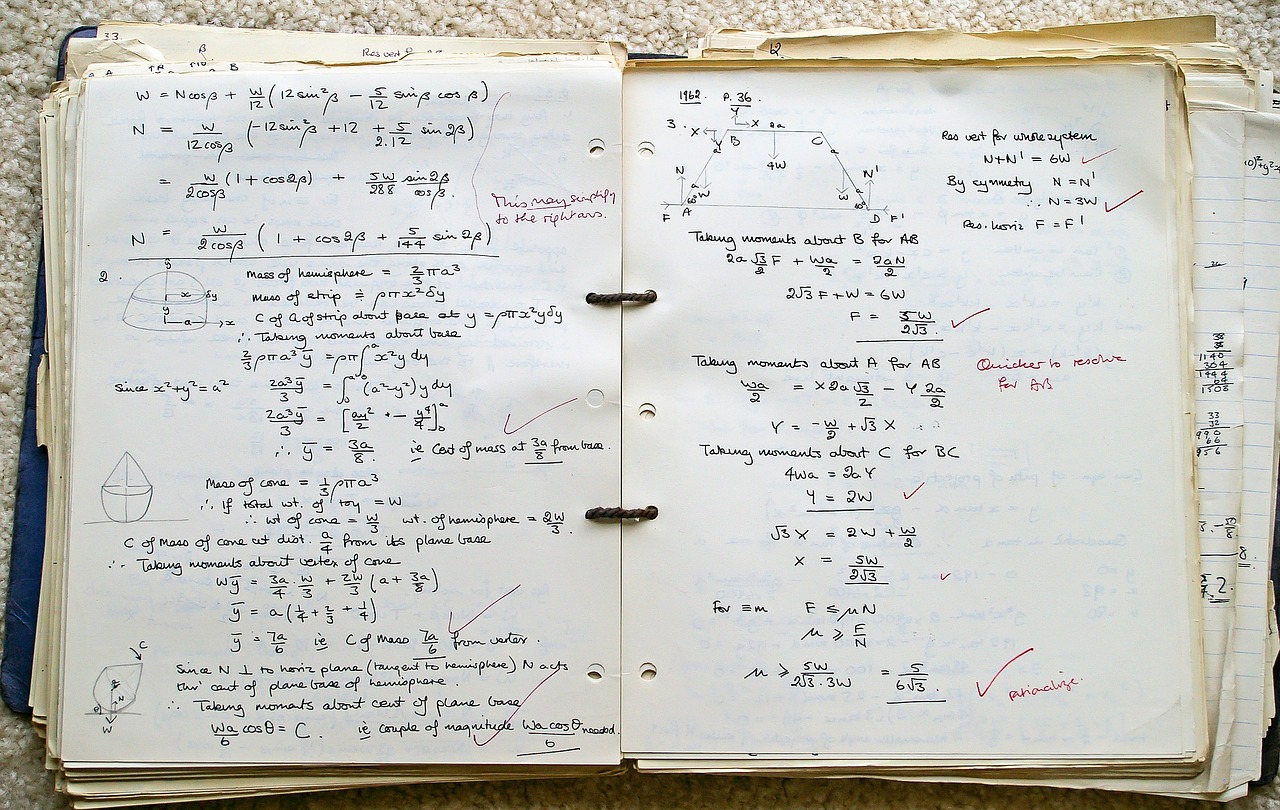 33.
β
Res vert
B
W = N cos β + W/12 (12 sin²β − 5/12 sin β cos β)
N = W/12cosβ (−12 sin²β + 12 + 5/2.12 sin 2β)
= W/2cosβ (1 + cos 2β) + 5W/288 sin 2β/cos β.
This may simplify
to the right ans.
N = W/2cosβ (1 + cos 2β + 5/144 sin 2β)
2.
y
x δy
y
a x
Mass of hemisphere = 2/3 πa³
Mass of strip ≡ ρπx²δy
C of G of strip about base at y = ρπx²yδy
∴ Taking moments about base
2/3 ρπa³ȳ = ρπ∫₀ᵃ x²y dy
Since x²+y²=a² 2a³ȳ/3 = ∫₀ᵃ (a²−y²)y dy
2a³ȳ/3 = [ay²/2 − y⁴/4]₀ᵃ
∴ ȳ = 3a/8 ie Cent of mass at 3a/8 from base.
Mass of cone = 1/3 ρπa³
∴ If total wt. of toy = W
∴ wt of cone = W/3 wt. of hemisphere = 2W/3.
C of Mass of cone at dist. a/4 from its plane base
∴ Taking moments about vertex of cone
Wȳ = 3a/4 . W/3 + 2W/3 (a + 3a/8)
ȳ = a(1/4 + 2/3 + 1/4)
ȳ = 7a/6 ie C of Mass 7a/6 from vertex.
C
N
θ
W
Since N ⊥ to horiz plane (tangent to hemisphere) N acts
thro' cent of plane base of hemisphere.
∴ Taking moments about cent of plane base
Wa/6 cosθ = C. ie couple of magnitude Wa cosθ/6 needed.
12.
1962. P. 36.
3.
Y
X X 2a
B C
a Y a
4W
N N'
a W W a
60° 60°
F A D F'
Res vert for whole system
N+N' = 6W
By symmetry N = N'
∴ N = 3W
Res. horiz F = F'
Taking moments about B for AB
2a √3/2 F + Wa/2 = 2aN/2
2√3 F + W = 6W
F = 5W/2√3.
Taking moments about A for AB
Quicker to resolve
for AB
Wa/2 = X 2a √3/2 − Y 2a/2
Y = −W/2 + √3 X
Taking moments about C for BC
4Wa = 2aY
Y = 2W
√3 X = 2W + W/2
X = 5W/2√3
For ≡m F ≤ μN
μ ≥ F/N
μ ≥ 5W/2√3.3W = 5/6√3.
rationalize.
38
38
1140
304
1444
64
1508
33
32
990
66
956